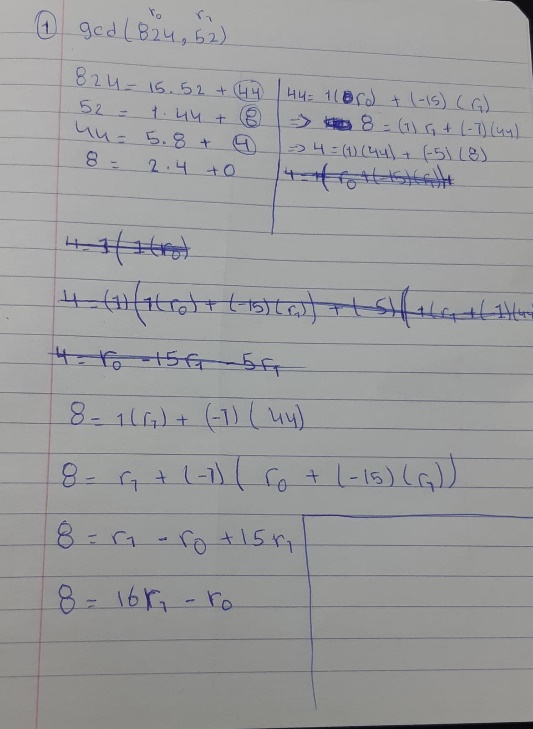 r₀ r₁
① gcd(824, 52)
824 = 15.52 + 44
52 = 1.44 + 8
44 = 5.8 + 4
8 = 2.4 + 0
44 = 1(r₀) + (-15)(r₁)
=> 8 = (1) r₁ + (-1)(44)
=> 4 = (1)(44) + (-5)(8)
4 = 1(r₀ + (-15)(r₁))
4 = 1(1(r₀)
4 = (1)(1(r₀) + (-15)(r₁)) + (-5)(1(r₁ + (-1)(44
4 = r₀ - 15r₁ - 5r₁
8 = 1(r₁) + (-1)(44)
8 = r₁ + (-1)(r₀ + (-15)(r₁))
8 = r₁ - r₀ + 15r₁
8 = 16r₁ - r₀